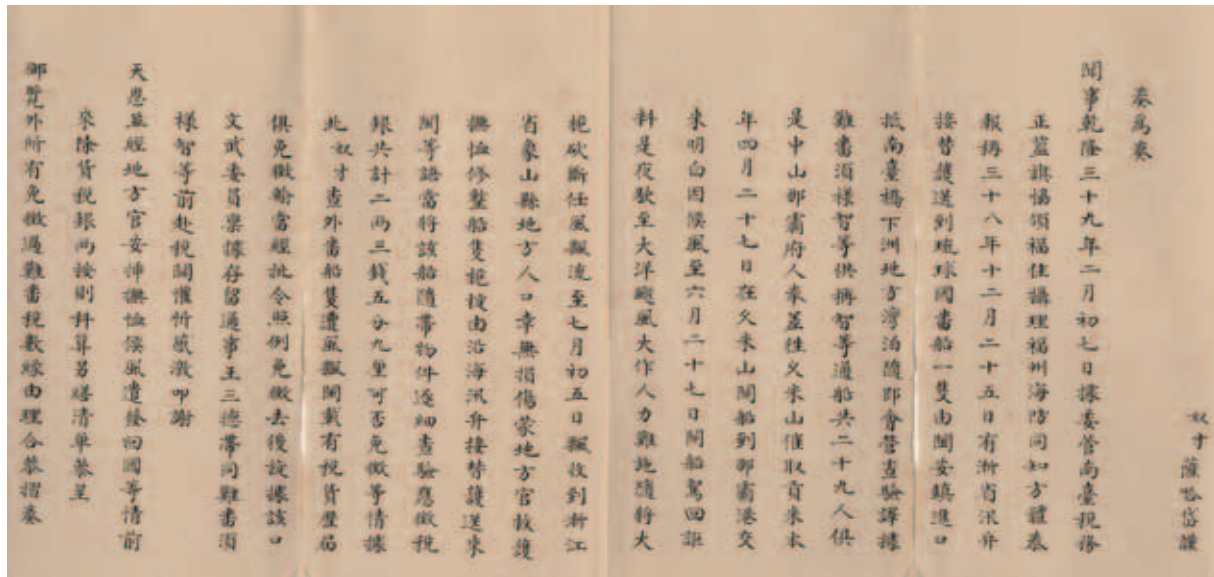 奴才薩哈岱謹
奏為奏
聞事乾隆三十九年二月初七日據委管南臺稅務
正藍旗協領福住攝理福州海防同知方體泰
報稱三十八年十二月二十五日有浙省汛弁
接替護送到琉球國番船一隻由閩安鎮進口
抵南臺橋下洲地方灣泊隨即會營查驗譯據
難番須樣智等供稱智等通船共二十九人俱
是中山那霸府人來葢往久米山催取貢米本
年四月二十七日在久米山開船到那霸港交
米明白因候風至六月二十七日開船駕回詎
料是夜駛至大洋颶風大作人力難施隨將大
桅砍斷任風飄流至七月初五日飄收到浙江
省象山縣地方人口幸無損傷蒙地方官救護
撫恤修整船隻桅椗由沿海汛弁接替護送來
閩等語當將該船隨帶物件逐細查驗應徵稅
銀共計二兩三錢五分九厘可否免徵等情據
此奴才查外番船隻遭風飄閩載有稅貨歷局
俱免徵輸當經批令照例免徵去後茲據該口
文武委員稟據存留通事王三德帶同難番須
樣智等前赴稅關懽忻感激叩謝
天恩並經地方官安插撫恤候風遣發回國等情前
來除貨稅銀兩按則科算另繕清單恭呈
御覽外所有免徵過難番稅數緣由理合恭摺奏